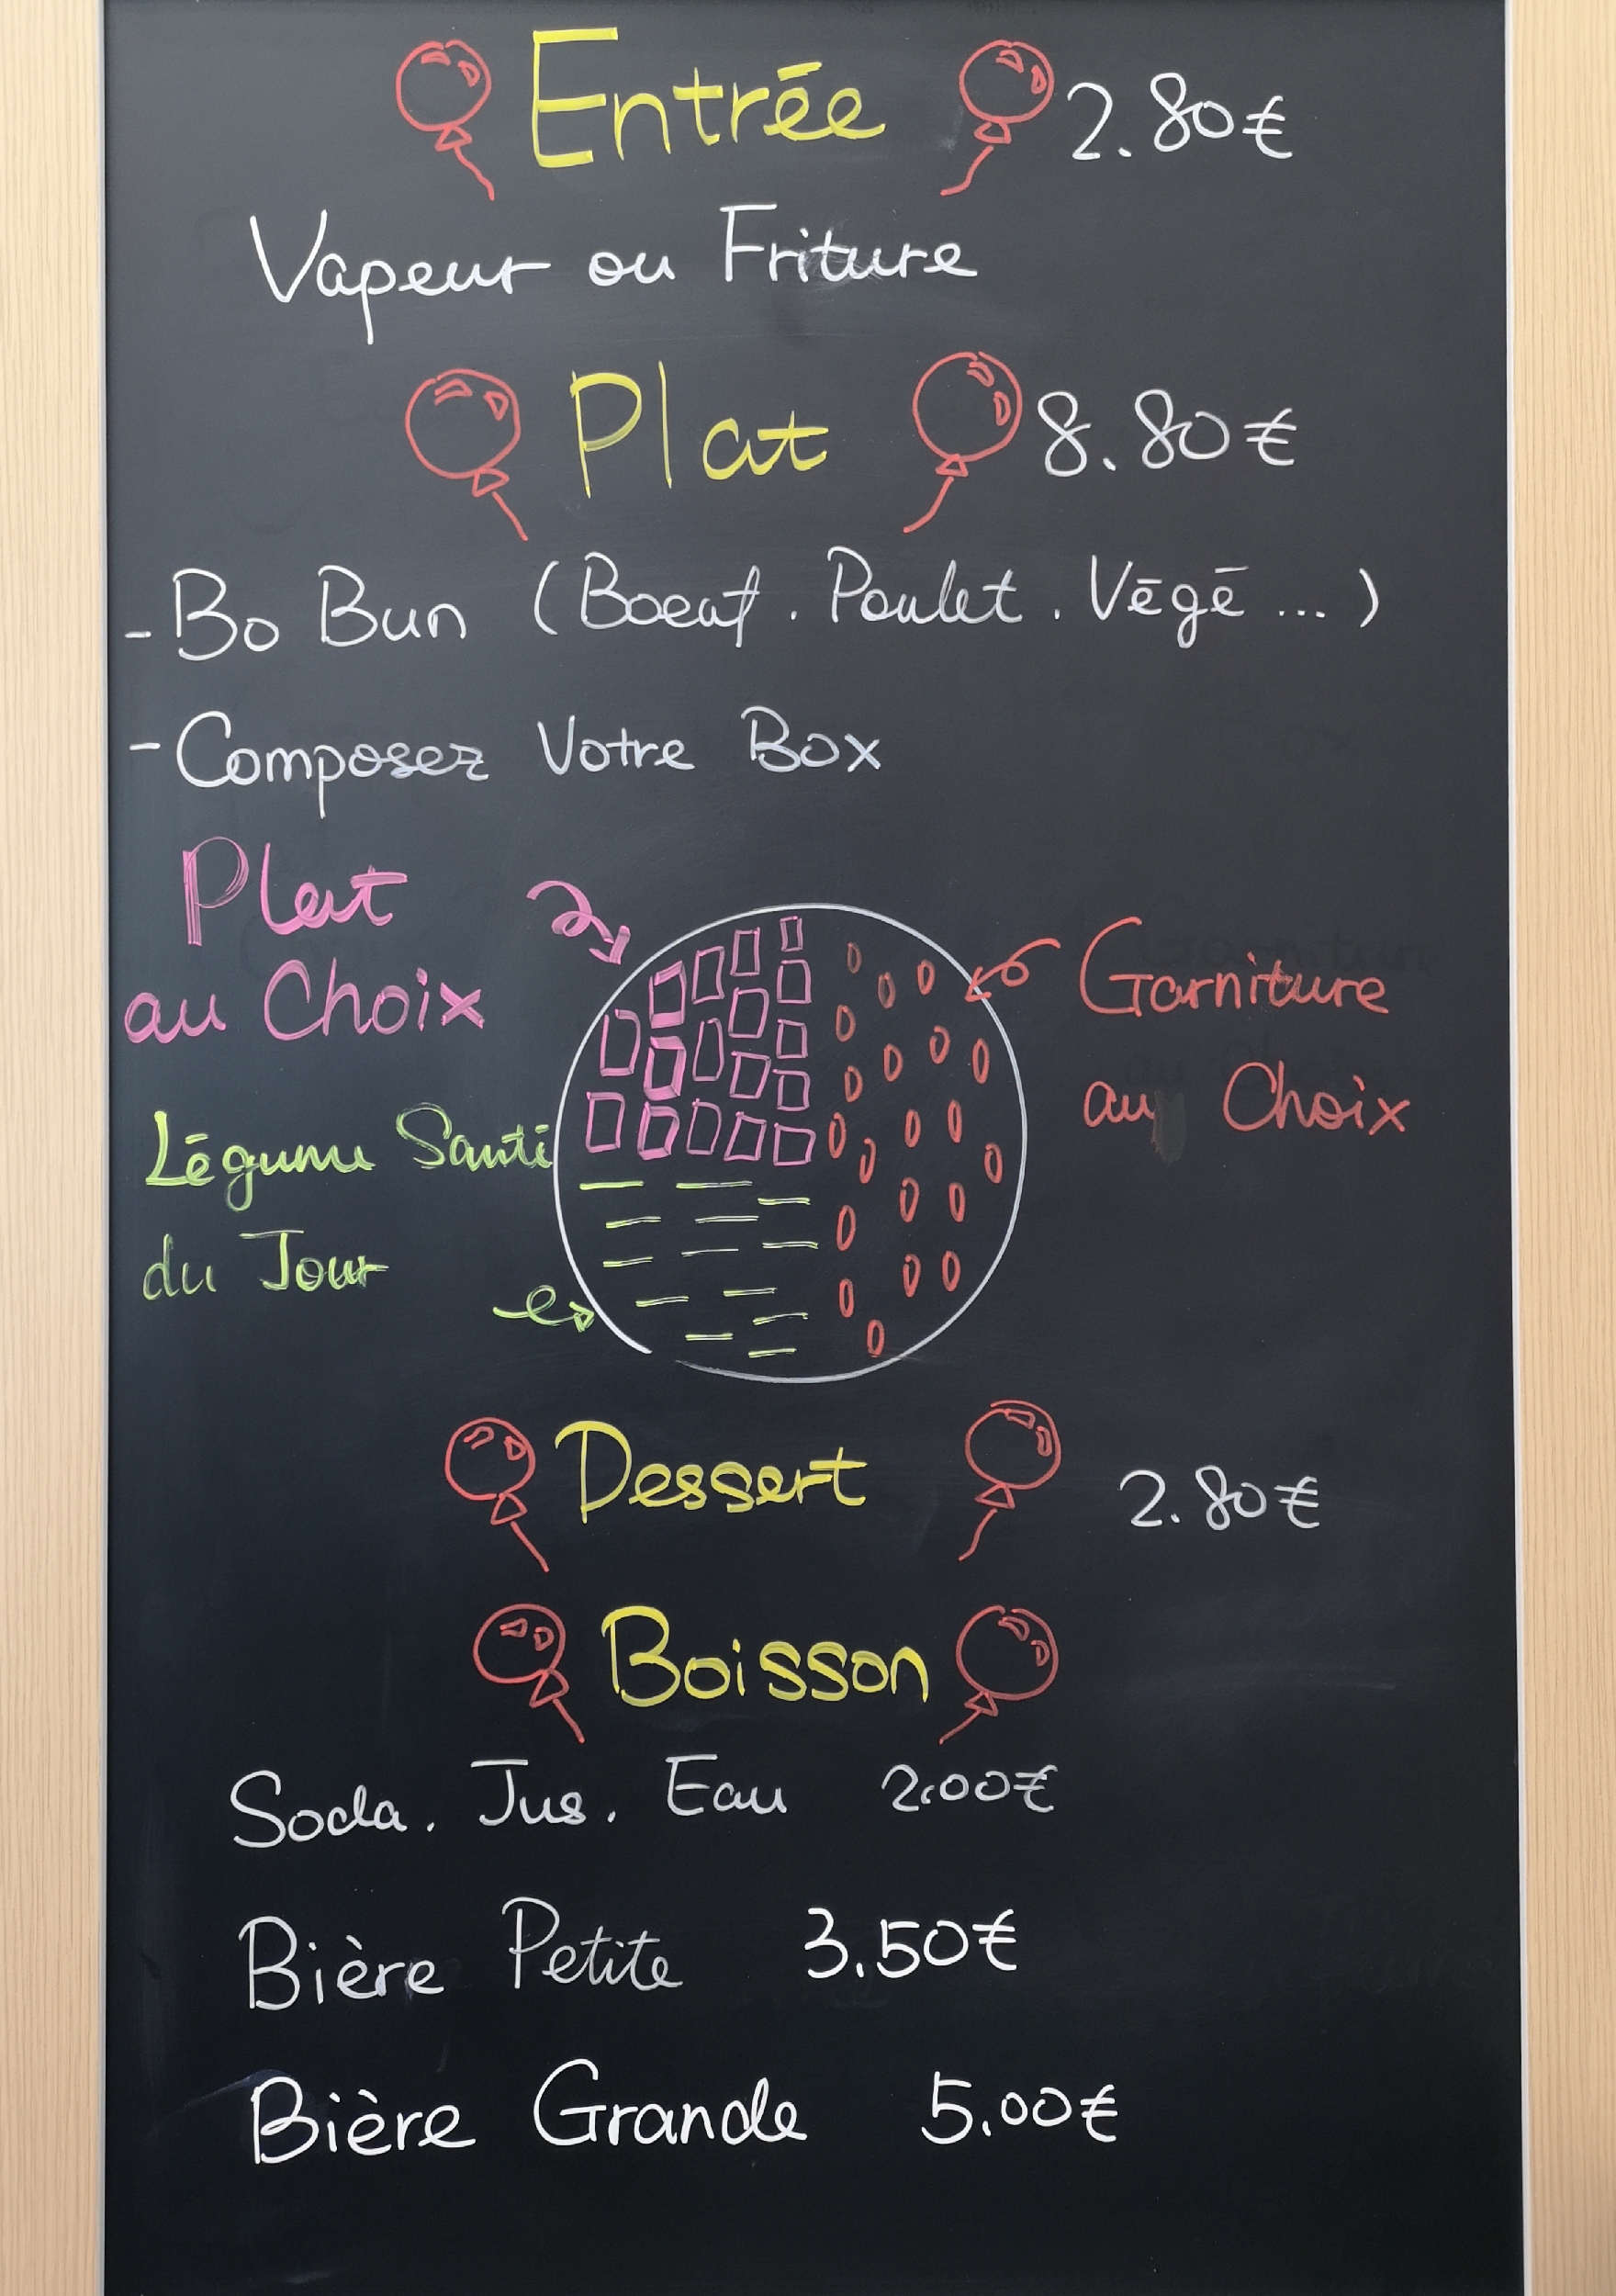 Entrée 2.80€
Vapeur ou Friture
Plat 8.80€
- Bo Bun (Boeuf. Poulet. Végé ...)
- Composez Votre Box
Plat
au Choix
Garniture
au Choix
Légume Santé
du Jour
Dessert 2.80€
Boisson
Soda. Jus. Eau 2.00€
Bière Petite 3.50€
Bière Grande 5.00€